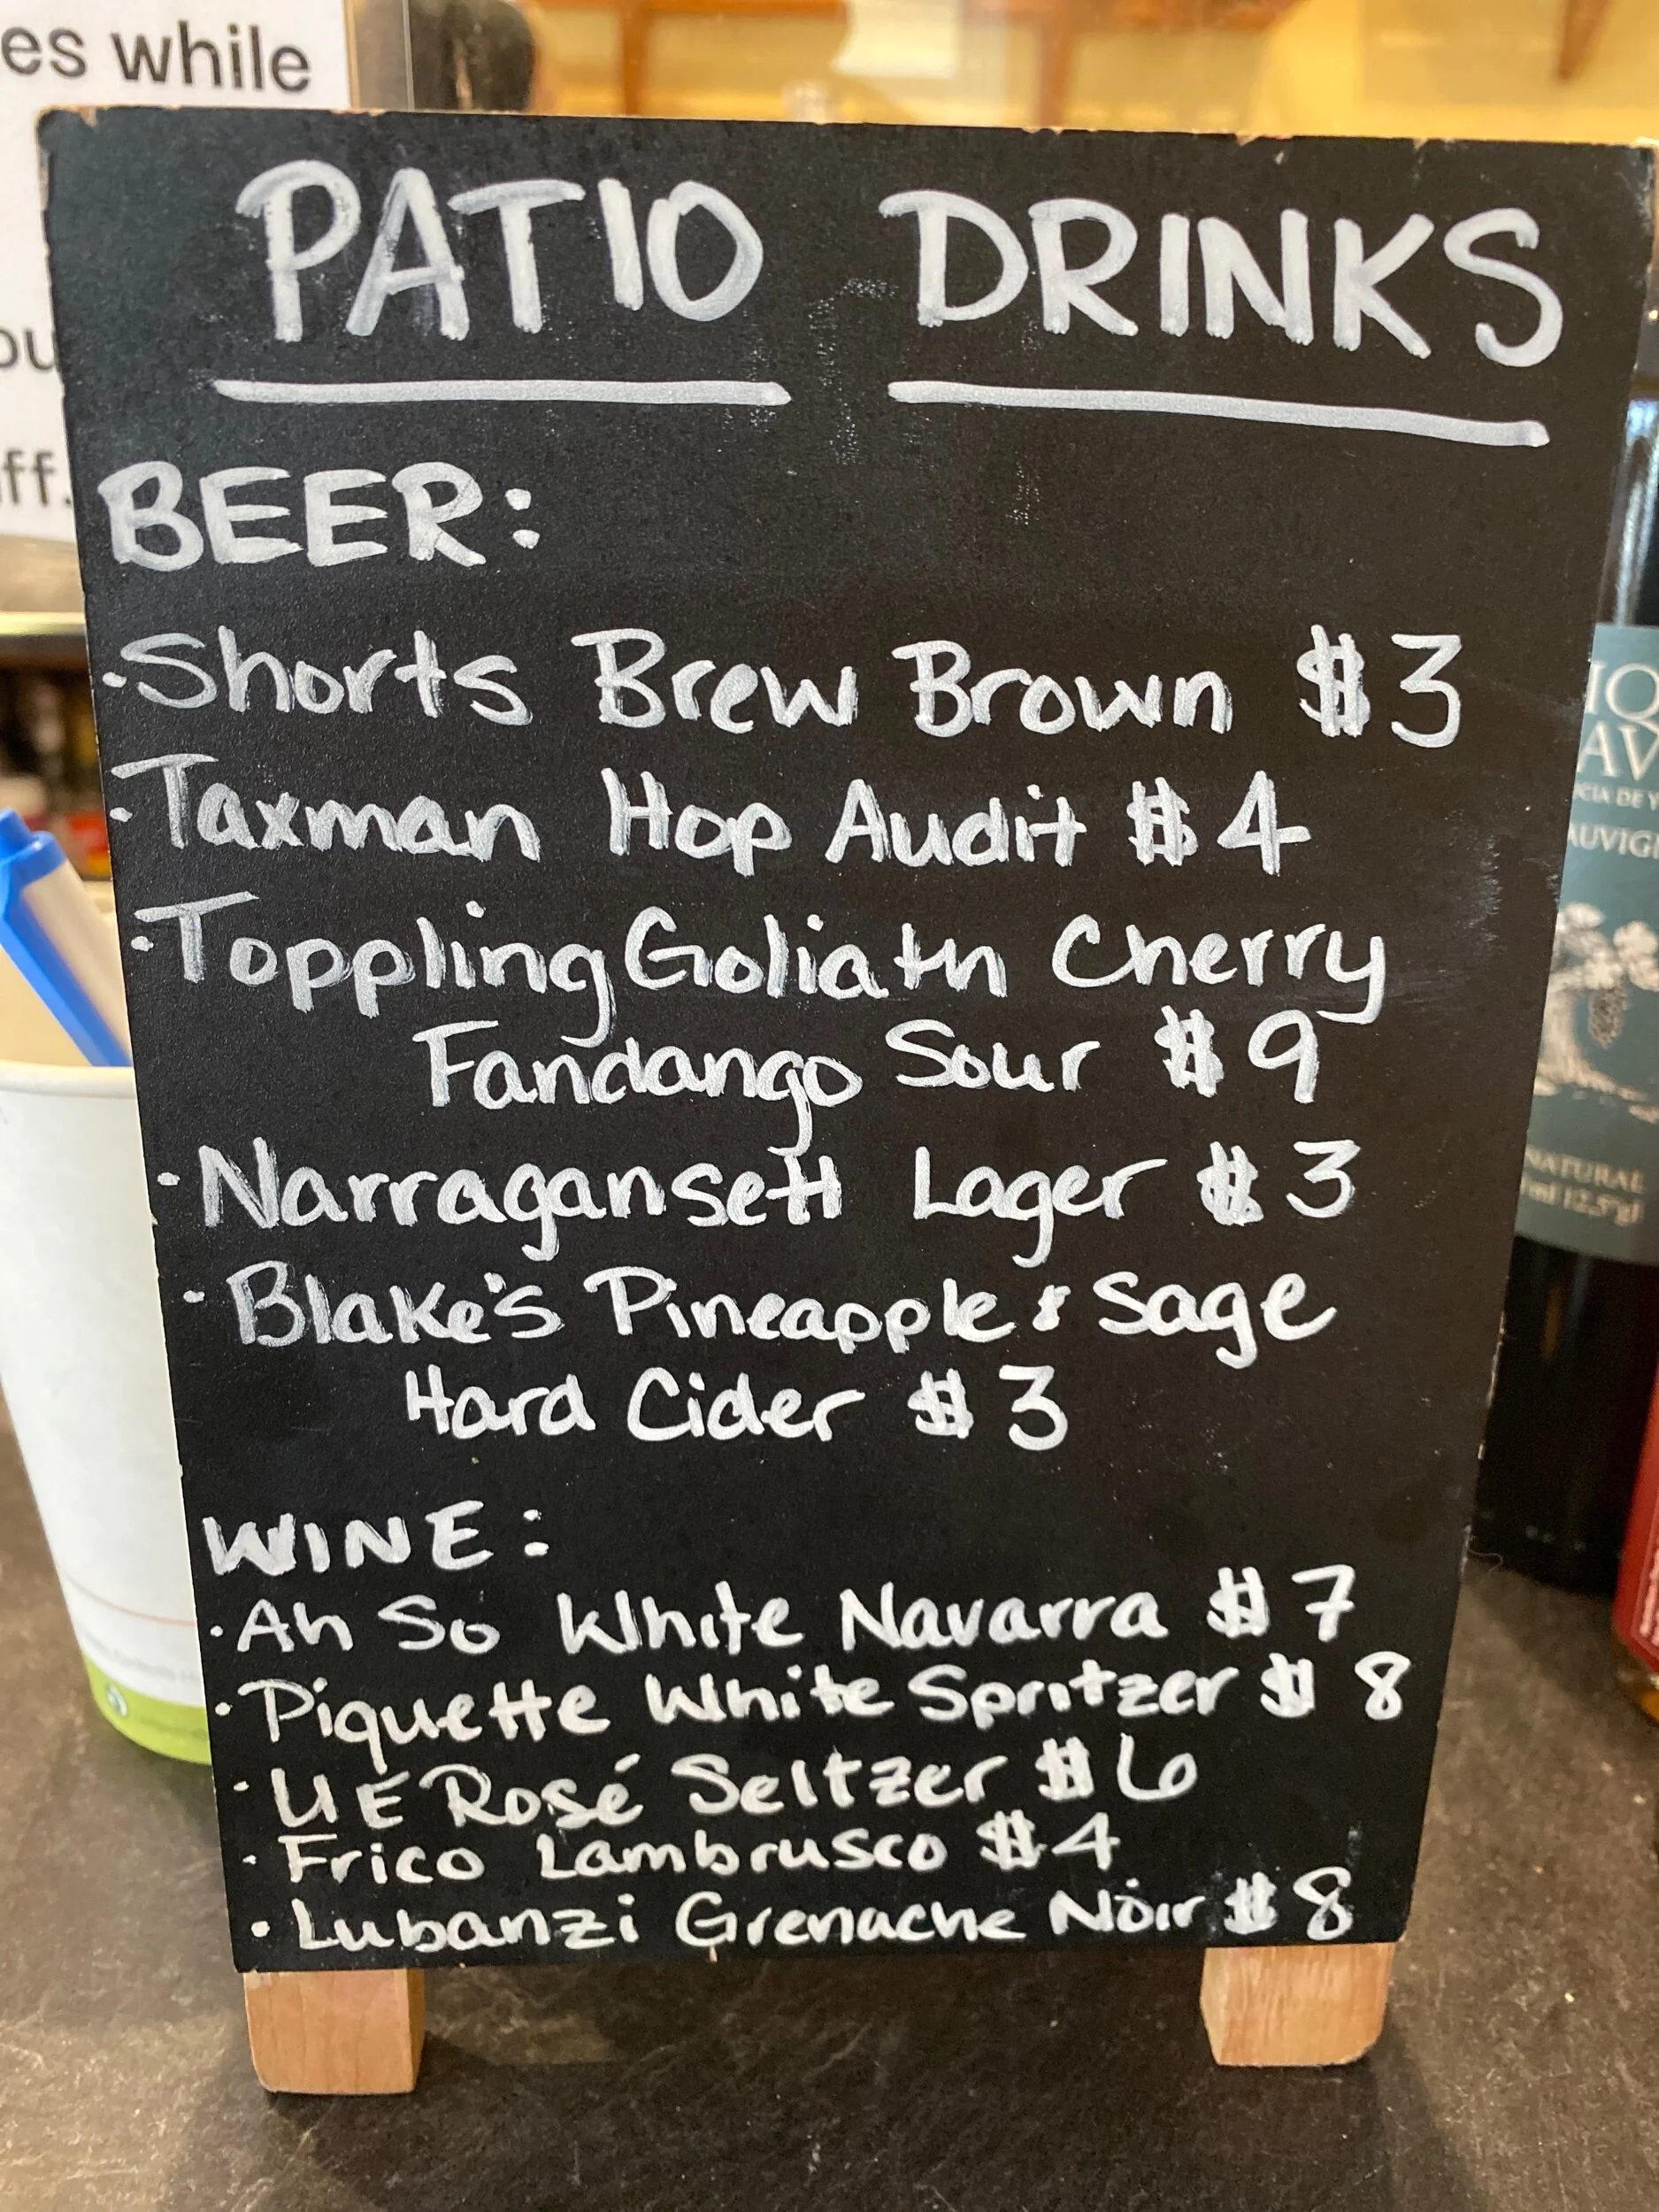 es while
ou
ff.
PATIO DRINKS
BEER:
·Shorts Brew Brown $3
·Taxman Hop Audit $4
·Toppling Goliath Cherry
Fandango Sour $9
·Narragansett Lager $3
·Blake's Pineapple & Sage
Hard Cider $3
WINE:
·Ah So White Navarra $7
·Piquette White Spritzer $8
·UE Rosé Seltzer $6
·Frico Lambrusco $4
·Lubanzi Grenache Noir $8
IQ
AV
CIA DE
AUVIG
NATURAL